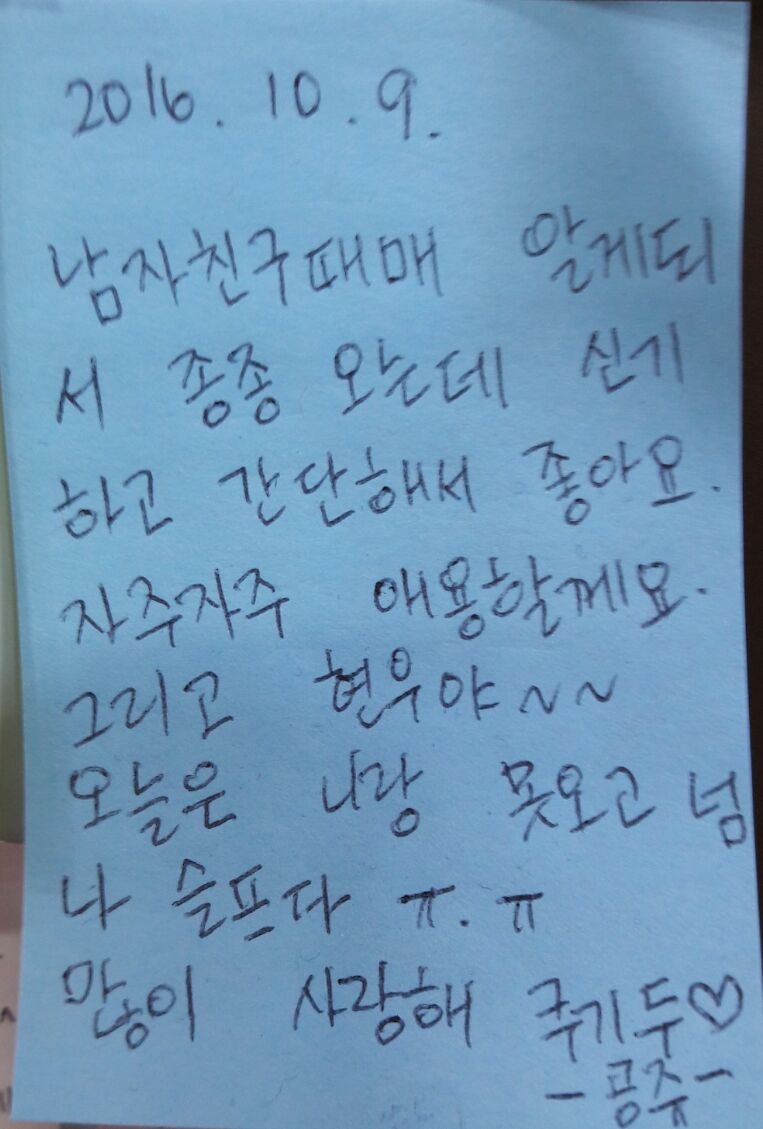 2016. 10. 9.
남자친구때매 알게되
서 종종 오는데 신기
하고 간단해서 좋아요.
자주자주 애용할께요.
그리고 현우야~~
오늘은 나랑 못오고 넘
나 슬프다 ㅠ.ㅠ
많이 사랑해 쿡기두♡
- 공주 -